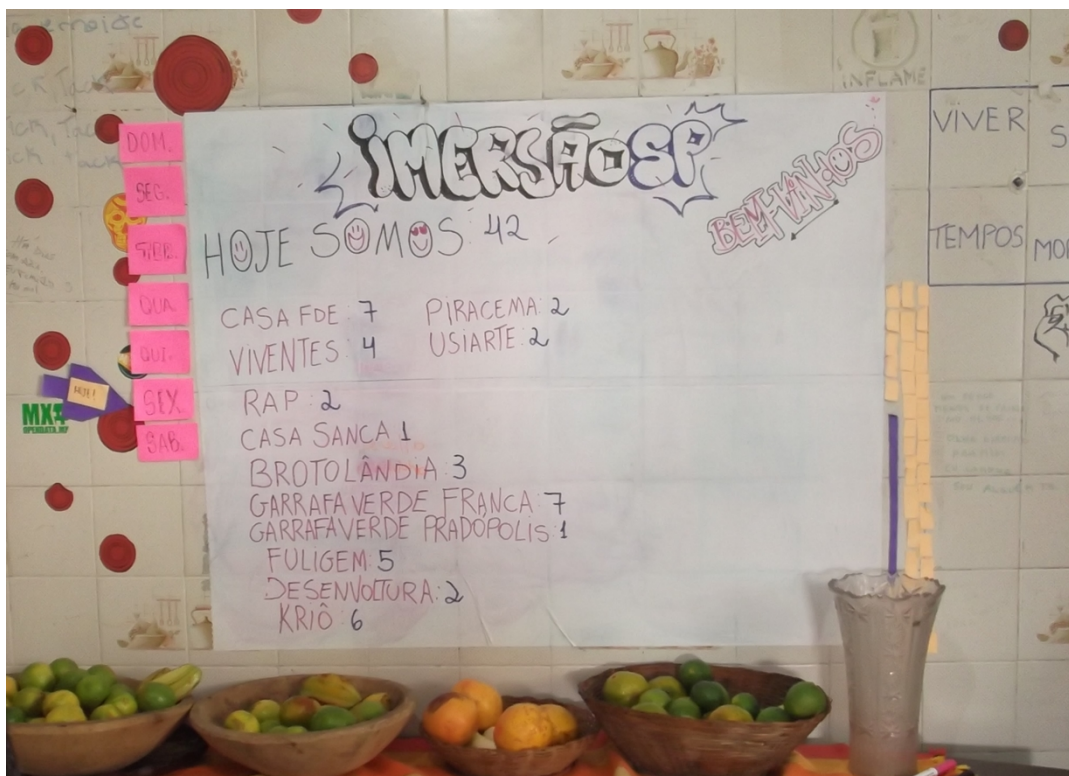 DOM.
SEG.
TER.
QUA.
QUI.
SEX
SAB.
HOJE!
iMERSÃO SP
BEM-VINHOS
HOJE SOMOS: 42
CASA FDE: 7
VIVENTES: 4
PIRACEMA: 2
USIARTE: 2
RAP: 2
CASA SANCA 1
BROTOLÂNDIA: 3
GARRAFA VERDE FRANCA: 7
GARRAFA VERDE PRADÓPOLIS: 1
FULIGEM: 5
DESENVOLTURA: 2
KRIÔ: 6
INFLAME
VIVER
TEMPOS
S
MO